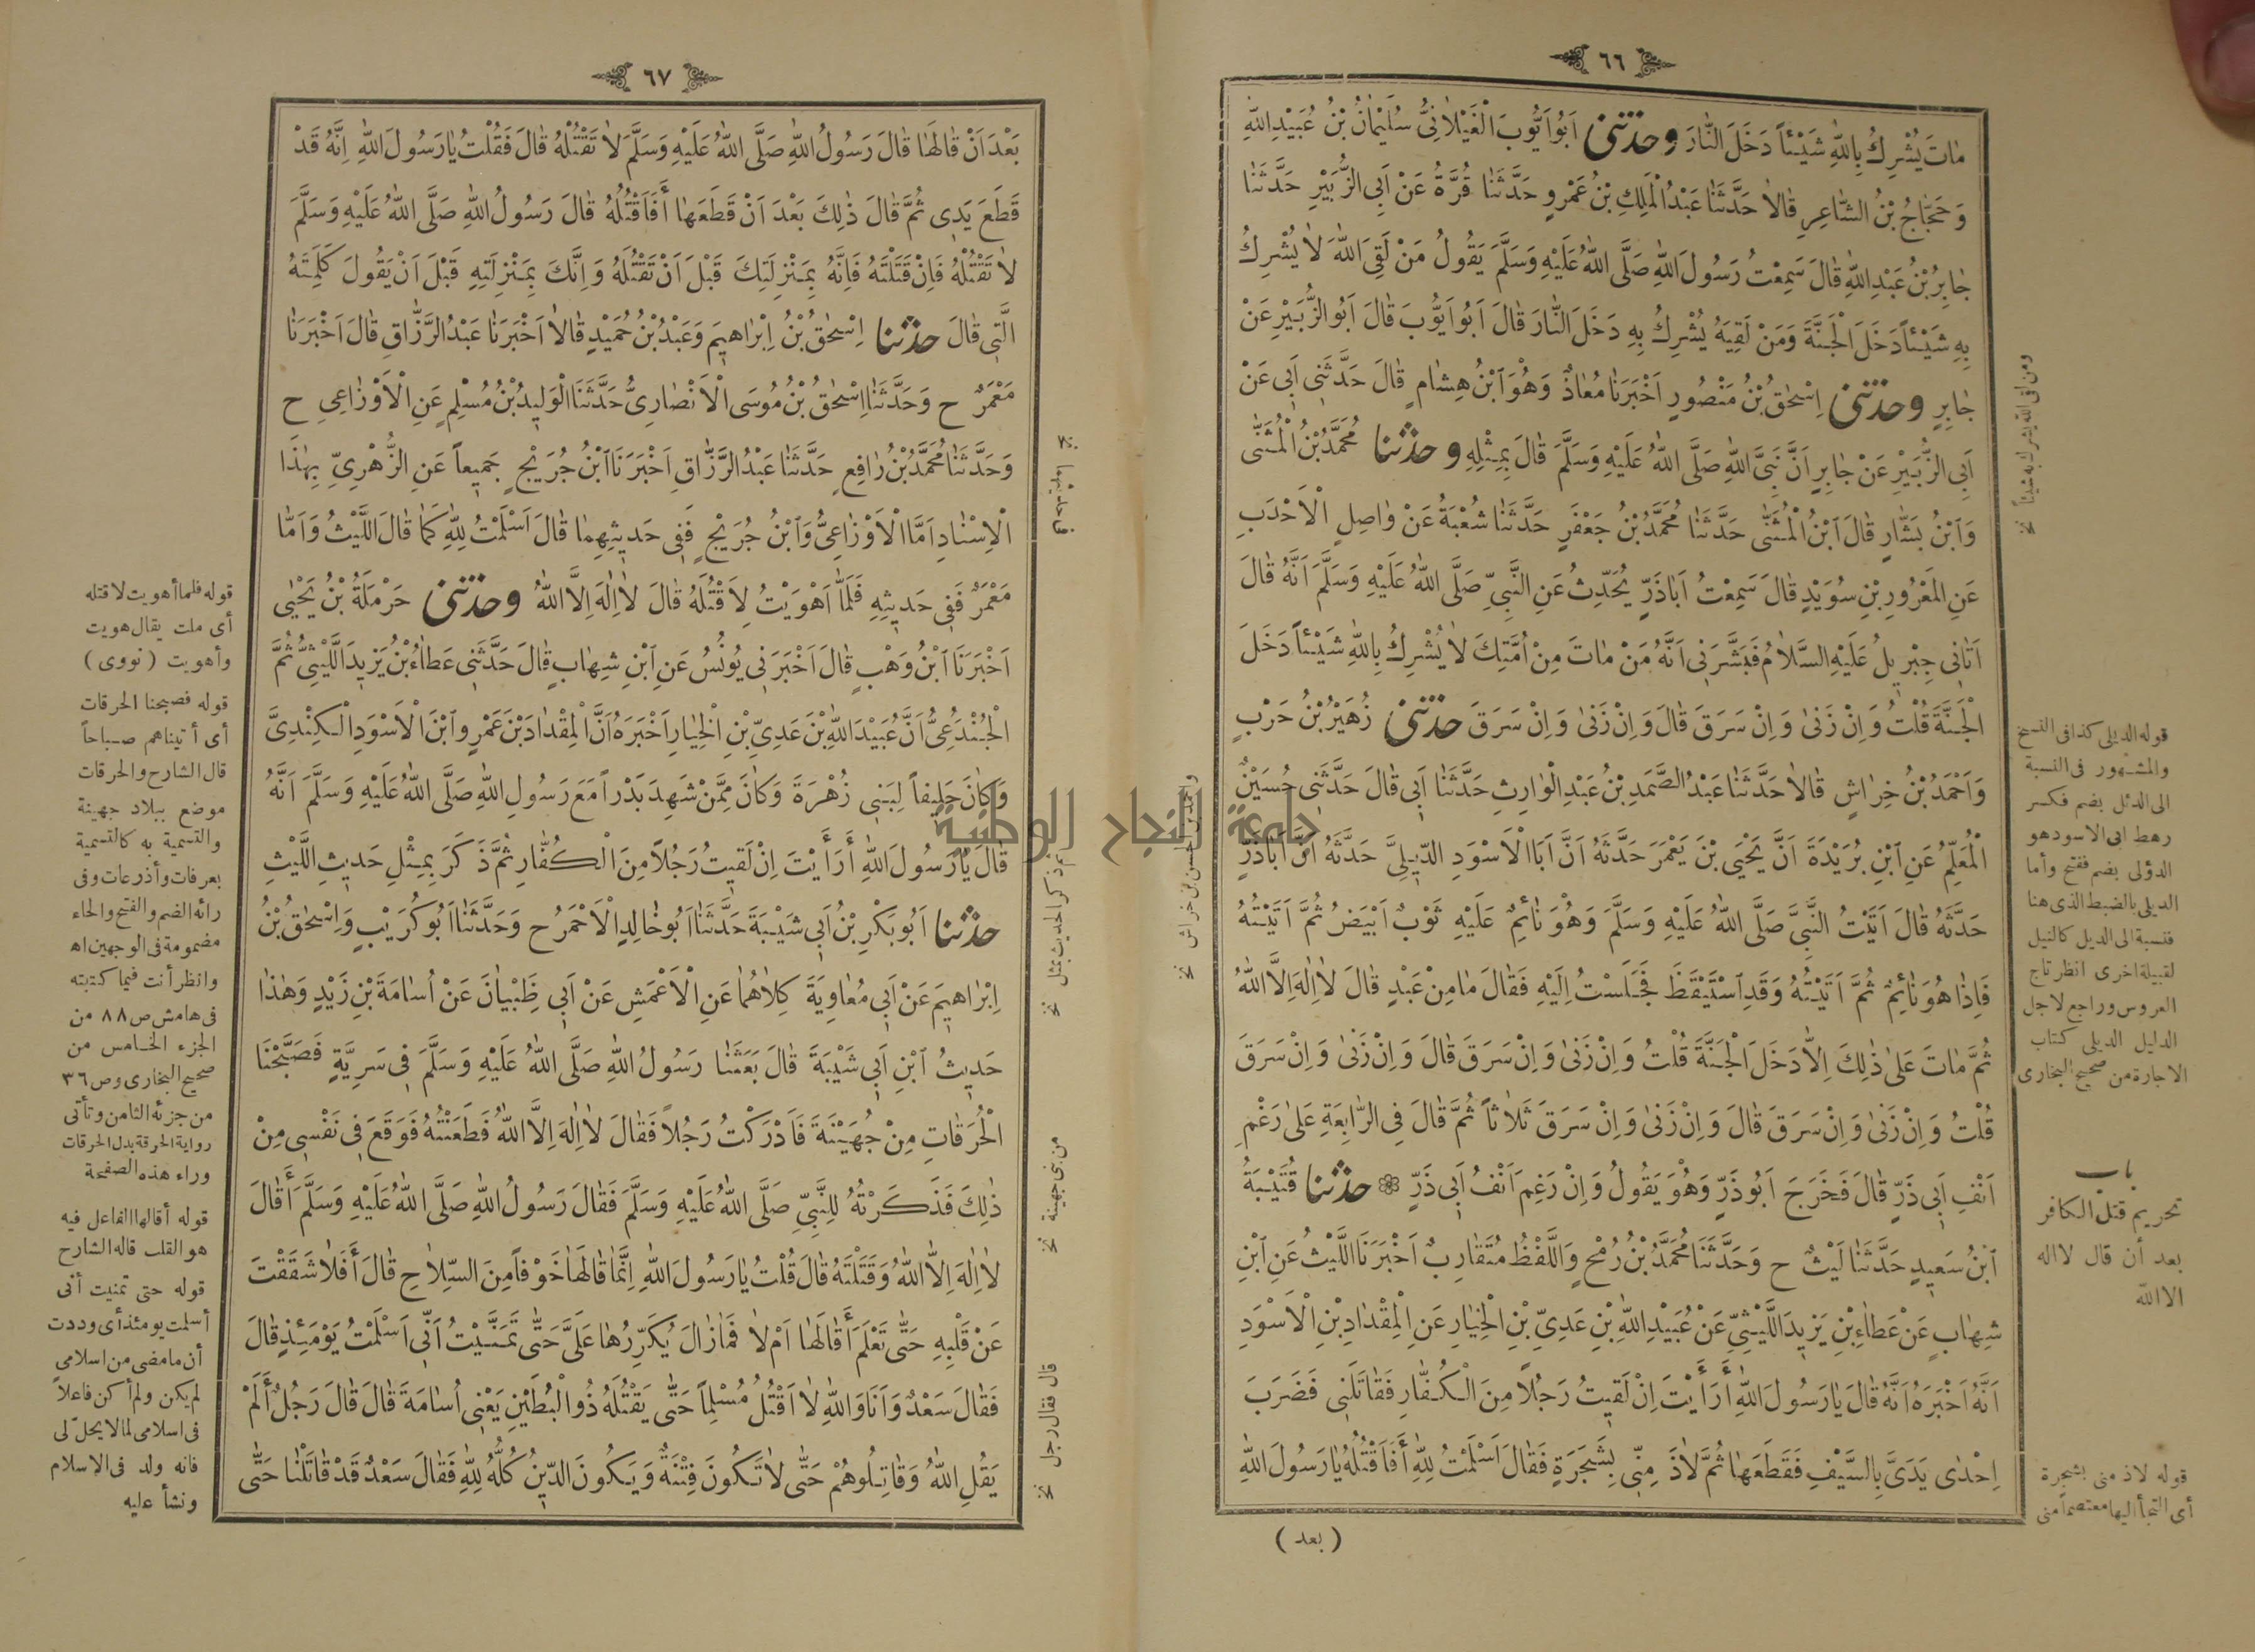 ٦٦
مٰاتَ يُشْرِكُ بِاللّٰهِ شَيْئاً دَخَلَ النّٰارَ وحدثنى اَبُو اَيُّوبَ الْغَيْلاٰنِىُّ سُلَيْمٰانُ بْنُ عُبَيْدِ اللّٰهِ
وَحَجّٰاجُ بْنُ الشّٰاعِرِ قٰالاٰ حَدَّثَنٰا عَبْدُ الْمَلِكِ بْنُ عَمْرٍو حَدَّثَنٰا قُرَّةُ عَنْ اَبِى الزُّبَيْرِ حَدَّثَنٰا
جٰابِرُ بْنُ عَبْدِ اللّٰهِ قٰالَ سَمِعْتُ رَسُولَ اللّٰهِ صَلَّى اللّٰهُ عَلَيْهِ وَسَلَّمَ يَقُولُ مَنْ لَقِىَ اللّٰهَ لاٰ يُشْرِكُ
بِهِ شَيْئاً دَخَلَ الْجَنَّةَ وَمَنْ لَقِيَهُ يُشْرِكُ بِهِ دَخَلَ النّٰارَ قٰالَ اَبُو اَيُّوبَ قٰالَ اَبُو الزُّبَيْرِ عَنْ
جٰابِرٍ وحدثنى اِسْحٰقُ بْنُ مَنْصُورٍ اَخْبَرَنٰا مُعٰاذٌ وَهُوَ ابْنُ هِشٰامٍ قٰالَ حَدَّثَنِى اَبِى عَنْ
اَبِى الزُّبَيْرِ عَنْ جٰابِرٍ اَنَّ نَبِىَّ اللّٰهِ صَلَّى اللّٰهُ عَلَيْهِ وَسَلَّمَ قٰالَ بِمِثْلِهِ وحدثنا مُحَمَّدُ بْنُ الْمُثَنّٰى
وَابْنُ بَشّٰارٍ قٰالَ ابْنُ الْمُثَنّٰى حَدَّثَنٰا مُحَمَّدُ بْنُ جَعْفَرٍ حَدَّثَنٰا شُعْبَةُ عَنْ وٰاصِلٍ الْاَحْدَبِ
عَنِ الْمَعْرُورِ بْنِ سُوَيْدٍ قٰالَ سَمِعْتُ اَبٰا ذَرٍّ يُحَدِّثُ عَنِ النَّبِىِّ صَلَّى اللّٰهُ عَلَيْهِ وَسَلَّمَ اَنَّهُ قٰالَ
اَتٰانِى جِبْرِيلُ عَلَيْهِ السَّلاٰمُ فَبَشَّرَنِى اَنَّهُ مَنْ مٰاتَ مِنْ اُمَّتِكَ لاٰ يُشْرِكُ بِاللّٰهِ شَيْئاً دَخَلَ
الْجَنَّةَ قُلْتُ وَاِنْ زَنٰى وَاِنْ سَرَقَ قٰالَ وَاِنْ زَنٰى وَاِنْ سَرَقَ حدثنى زُهَيْرُ بْنُ حَرْبٍ
وَاَحْمَدُ بْنُ خِرٰاشٍ قٰالاٰ حَدَّثَنٰا عَبْدُ الصَّمَدِ بْنُ عَبْدِ الْوٰارِثِ حَدَّثَنٰا اَبِى قٰالَ حَدَّثَنِى حُسَيْنٌ
الْمُعَلِّمُ عَنِ ابْنِ بُرَيْدَةَ اَنَّ يَحْيَى بْنَ يَعْمَرَ حَدَّثَهُ اَنَّ اَبَا الْاَسْوَدِ الدِّيلِىَّ حَدَّثَهُ اَنَّ اَبٰا ذَرٍّ
حَدَّثَهُ قٰالَ اَتَيْتُ النَّبِىَّ صَلَّى اللّٰهُ عَلَيْهِ وَسَلَّمَ وَهُوَ نٰائِمٌ عَلَيْهِ ثَوْبٌ اَبْيَضُ ثُمَّ اَتَيْتُهُ
فَاِذٰا هُوَ نٰائِمٌ ثُمَّ اَتَيْتُهُ وَقَدِ اسْتَيْقَظَ فَجَلَسْتُ اِلَيْهِ فَقٰالَ مٰا مِنْ عَبْدٍ قٰالَ لاٰ اِلٰهَ اِلَّا اللّٰهُ
ثُمَّ مٰاتَ عَلىٰ ذٰلِكَ اِلاّٰ دَخَلَ الْجَنَّةَ قُلْتُ وَاِنْ زَنٰى وَاِنْ سَرَقَ قٰالَ وَاِنْ زَنٰى وَاِنْ سَرَقَ
قُلْتُ وَاِنْ زَنٰى وَاِنْ سَرَقَ قٰالَ وَاِنْ زَنٰى وَاِنْ سَرَقَ ثَلاٰثاً ثُمَّ قٰالَ فِى الرّٰابِعَةِ عَلىٰ رَغْمِ
اَنْفِ اَبِى ذَرٍّ قٰالَ فَخَرَجَ اَبُو ذَرٍّ وَهُوَ يَقُولُ وَاِنْ رَغِمَ اَنْفُ اَبِى ذَرٍّ ❁ حدثنا قُتَيْبَةُ
ابْنُ سَعِيدٍ حَدَّثَنٰا لَيْثٌ ح وَحَدَّثَنٰا مُحَمَّدُ بْنُ رُمْحٍ وَاللَّفْظُ مُتَقٰارِبٌ اَخْبَرَنَا اللَّيْثُ عَنِ ابْنِ
شِهٰابٍ عَنْ عَطٰاءِ بْنِ يَزِيدَ اللَّيْثِىِّ عَنْ عُبَيْدِ اللّٰهِ بْنِ عَدِىِّ بْنِ الْخِيٰارِ عَنِ الْمِقْدٰادِ بْنِ الْاَسْوَدِ
اَنَّهُ اَخْبَرَهُ اَنَّهُ قٰالَ يٰا رَسُولَ اللّٰهِ أَرَأَيْتَ اِنْ لَقِيتُ رَجُلاً مِنَ الْكُفّٰارِ فَقٰاتَلَنِى فَضَرَبَ
اِحْدٰى يَدَىَّ بِالسَّيْفِ فَقَطَعَهٰا ثُمَّ لاٰذَ مِنِّى بِشَجَرَةٍ فَقٰالَ اَسْلَمْتُ لِلّٰهِ أَفَاَقْتُلُهُ يٰا رَسُولَ اللّٰهِ
( بعد )
ومن لقى الله يشرك به شيئاً نخ
قوله الديلى كذا فى النسخ
والمشهور فى النسبة
الى الدئل بضم فكسر
رهط ابى الاسود هو
الدؤلى بضم ففتح وأما
الديلى بالضبط الذى هنا
فنسبة الى الديل كالنيل
لقبيلة اخرى انظر تاج
العروس وراجع لاجل
الدليل الديلى كتاب
الاجارة من صحيح البخارى
باب
تحريم قتل الكافر
بعد أن قال لا اله
الا الله
قوله لاذ منى بشجرة
أى التجأ اليها معتصماً منى
واحمد بن الحسن بن خراش نخ
٦٧
بَعْدَ اَنْ قٰالَهٰا قٰالَ رَسُولُ اللّٰهِ صَلَّى اللّٰهُ عَلَيْهِ وَسَلَّمَ لاٰ تَقْتُلْهُ قٰالَ فَقُلْتُ يٰا رَسُولَ اللّٰهِ اِنَّهُ قَدْ
قَطَعَ يَدِى ثُمَّ قٰالَ ذٰلِكَ بَعْدَ اَنْ قَطَعَهٰا أَفَاَقْتُلُهُ قٰالَ رَسُولُ اللّٰهِ صَلَّى اللّٰهُ عَلَيْهِ وَسَلَّمَ
لاٰ تَقْتُلْهُ فَاِنْ قَتَلْتَهُ فَاِنَّهُ بِمَنْزِلَتِكَ قَبْلَ اَنْ تَقْتُلَهُ وَاِنَّكَ بِمَنْزِلَتِهِ قَبْلَ اَنْ يَقُولَ كَلِمَتَهُ
الَّتِى قٰالَ حدثنا اِسْحٰقُ بْنُ اِبْرٰاهِيمَ وَعَبْدُ بْنُ حُمَيْدٍ قٰالاٰ اَخْبَرَنٰا عَبْدُ الرَّزّٰاقِ قٰالَ اَخْبَرَنٰا
مَعْمَرٌ ح وَحَدَّثَنٰا اِسْحٰقُ بْنُ مُوسَى الْاَنْصٰارِىُّ حَدَّثَنَا الْوَلِيدُ بْنُ مُسْلِمٍ عَنِ الْاَوْزٰاعِىِ ح
وَحَدَّثَنٰا مُحَمَّدُ بْنُ رٰافِعٍ حَدَّثَنٰا عَبْدُ الرَّزّٰاقِ اَخْبَرَنَا ابْنُ جُرَيْجٍ جَمِيعاً عَنِ الزُّهْرِىِّ بِهٰذَا
الْاِسْنٰادِ اَمَّا الْاَوْزٰاعِىُّ وَابْنُ جُرَيْجٍ فَفِى حَدِيثِهِمٰا قٰالَ اَسْلَمْتُ لِلّٰهِ كَمٰا قٰالَ اللَّيْثُ وَاَمّٰا
مَعْمَرٌ فَفِى حَدِيثِهِ فَلَمّٰا اَهْوَيْتُ لِاَقْتُلَهُ قٰالَ لاٰ اِلٰهَ اِلَّا اللّٰهُ وحدثنى حَرْمَلَةُ بْنُ يَحْيٰى
اَخْبَرَنَا ابْنُ وَهْبٍ قٰالَ اَخْبَرَنِى يُونُسُ عَنِ ابْنِ شِهٰابٍ قٰالَ حَدَّثَنِى عَطٰاءُ بْنُ يَزِيدَ اللَّيْثِىُّ ثُمَّ
الْجُنْدَعِىُّ اَنَّ عُبَيْدَ اللّٰهِ بْنَ عَدِىِّ بْنِ الْخِيٰارِ اَخْبَرَهُ اَنَّ الْمِقْدٰادَ بْنَ عَمْرٍو ابْنَ الْاَسْوَدِ الْكِنْدِىَّ
وَكٰانَ حَلِيفاً لِبَنِى زُهْرَةَ وَكٰانَ مِمَّنْ شَهِدَ بَدْراً مَعَ رَسُولِ اللّٰهِ صَلَّى اللّٰهُ عَلَيْهِ وَسَلَّمَ اَنَّهُ
قٰالَ يٰا رَسُولَ اللّٰهِ أَرَأَيْتَ اِنْ لَقِيتُ رَجُلاً مِنَ الْكُفّٰارِ ثُمَّ ذَكَرَ بِمِثْلِ حَدِيثِ اللَّيْثِ
حدثنا اَبُو بَكْرِ بْنُ اَبِى شَيْبَةَ حَدَّثَنٰا اَبُو خٰالِدٍ الْاَحْمَرُ ح وَحَدَّثَنٰا اَبُو كُرَيْبٍ وَاِسْحٰقُ بْنُ
اِبْرٰاهِيمَ عَنْ اَبِى مُعٰاوِيَةَ كِلاٰهُمٰا عَنِ الْاَعْمَشِ عَنْ اَبِى ظَبْيٰانَ عَنْ اُسٰامَةَ بْنِ زَيْدٍ وَهٰذٰا
حَدِيثُ ابْنِ اَبِى شَيْبَةَ قٰالَ بَعَثَنٰا رَسُولُ اللّٰهِ صَلَّى اللّٰهُ عَلَيْهِ وَسَلَّمَ فِى سَرِيَّةٍ فَصَبَّحْنَا
الْحُرَقٰاتِ مِنْ جُهَيْنَةَ فَاَدْرَكْتُ رَجُلاً فَقٰالَ لاٰ اِلٰهَ اِلَّا اللّٰهُ فَطَعَنْتُهُ فَوَقَعَ فِى نَفْسِى مِنْ
ذٰلِكَ فَذَكَرْتُهُ لِلنَّبِىِّ صَلَّى اللّٰهُ عَلَيْهِ وَسَلَّمَ فَقٰالَ رَسُولُ اللّٰهِ صَلَّى اللّٰهُ عَلَيْهِ وَسَلَّمَ أَقٰالَ
لاٰ اِلٰهَ اِلَّا اللّٰهُ وَقَتَلْتَهُ قٰالَ قُلْتُ يٰا رَسُولَ اللّٰهِ اِنَّمٰا قٰالَهٰا خَوْفاً مِنَ السِّلاٰحِ قٰالَ أَفَلاٰ شَقَقْتَ
عَنْ قَلْبِهِ حَتّٰى تَعْلَمَ أَقٰالَهٰا اَمْ لاٰ فَمٰازٰالَ يُكَرِّرُهٰا عَلَىَّ حَتّٰى تَمَنَّيْتُ اَنِّى اَسْلَمْتُ يَوْمَئِذٍ قٰالَ
فَقٰالَ سَعْدٌ وَاَنَا وَاللّٰهِ لاٰ اَقْتُلُ مُسْلِماً حَتّٰى يَقْتُلَهُ ذُو الْبُطَيْنِ يَعْنِى اُسٰامَةَ قٰالَ قٰالَ رَجُلٌ أَلَمْ
يَقُلِ اللّٰهُ وَقٰاتِلُوهُمْ حَتّٰى لاٰ تَكُونَ فِتْنَةٌ وَيَكُونَ الدِّينُ كُلُّهُ لِلّٰهِ فَقٰالَ سَعْدٌ قَدْ قٰاتَلْنٰا حَتّٰى
ذكر الحديث بمثل نخ
من بنى جهينة نخ
قال فقال رجل نخ
قوله فلما أهويت لاقتله
أى ملت يقال هويت
وأهويت (نووى)
قوله فصبحنا الحرقات
أى أتيناهم صباحاً
قال الشارح والحرقات
موضع ببلاد جهينة
والتسمية به كالتسمية
بعرفات وأذرعات وفى
رائه الضم والفتح والحاء
مضمومة فى الوجهين اه
وانظر أنت فيما كتبته
فى هامش ص ٨٨ من
الجزء الخامس من
صحيح البخارى وص ٣٦
من جزئه الثامن وتأتى
رواية الحرقة بدل الحرقات
وراء هذه الصفحة
قوله أقالها الفاعل فيه
هو القلب قاله الشارح
قوله حتى تمنيت أنى
أسلمت يومئذ أى وددت
أن ما مضى من اسلامى
لم يكن ولم أكن فاعلاً
فى اسلامى لما لا يحلّ لى
فانه ولد فى الاسلام
ونشأ عليه
جامعة النجاح الوطنية